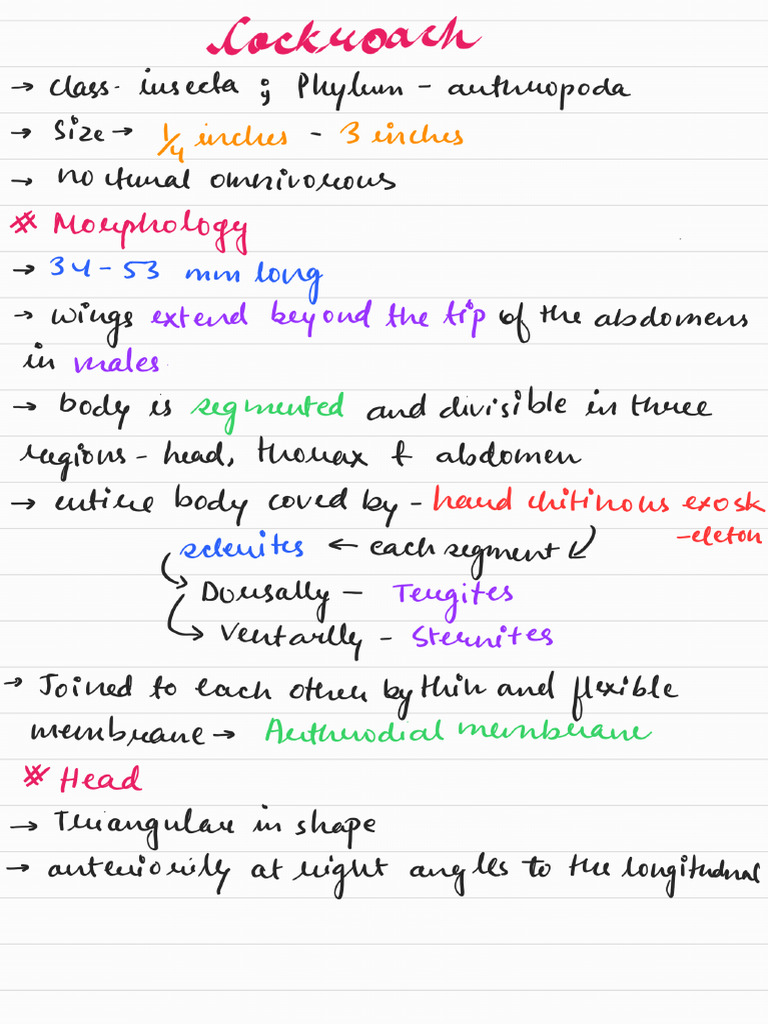 Cockroach
→ class- insecta ; Phylum - arthropoda
→ Size → 1/4 inches - 3 inches
→ nocturnal omnivorous
# Morphology
→ 34-53 mm long
→ wings extend beyond the tip of the abdomens
in males
→ body is segmented and divisible in three
regions - head, thorax & abdomen
→ entire body coved by - hard chitinous exosk
-eleton
sclerites ← each segment
→ Dorsally - Tergites
→ Ventarlly - Sternites
→ Joined to each other by thin and flexible
membrane → Arthrodial membrane
# Head
→ Triangular in shape
→ anteriorily at right angles to the longitudnal